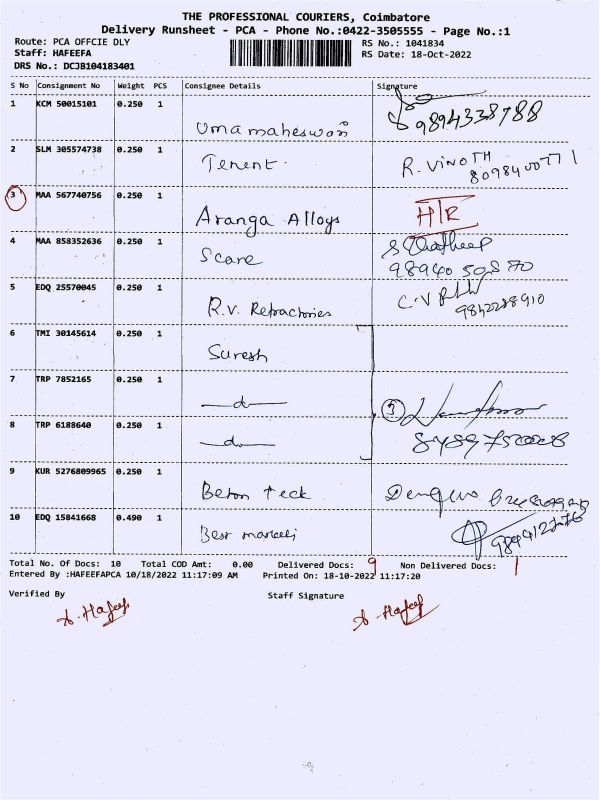 THE PROFESSIONAL COURIERS, Coimbatore
Delivery Runsheet - PCA - Phone No.:0422-3505555 - Page No.:1
Route: PCA OFFCIE DLY RS No.: 1041834
Staff: HAFEEFA RS Date: 18-Oct-2022
DRS No.: DCJB104183401
S No Consignment No Weight PCS Consignee Details Signature
1 KCM 50015101 0.250 1
Umamaheswari 9894338788
2 SLM 305574738 0.250 1
Tenent. R. VINOTH
8098400771
3 MAA 567740756 0.250 1
Aranga Alloys H/R
4 MAA 858352636 0.250 1
Scare
98940 50870
5 EDQ 25570045 0.250 1
R.V. Refractories C.V
9842228910
6 TMI 30145614 0.250 1
Suresh
7 TRP 7852165 0.250 1
—d—
8 TRP 6188640 0.250 1
—d—
9 KUR 5276809965 0.250 1
Beton teck
10 EDQ 15841668 0.490 1
Total No. Of Docs: 10 Total COD Amt: 0.00 Delivered Docs: 9 Non Delivered Docs: 1
Entered By :HAFEEFAPCA 10/18/2022 11:17:09 AM Printed On: 18-10-2022 11:17:20
Verified By Staff Signature
A. Hafeef A. Hafeef